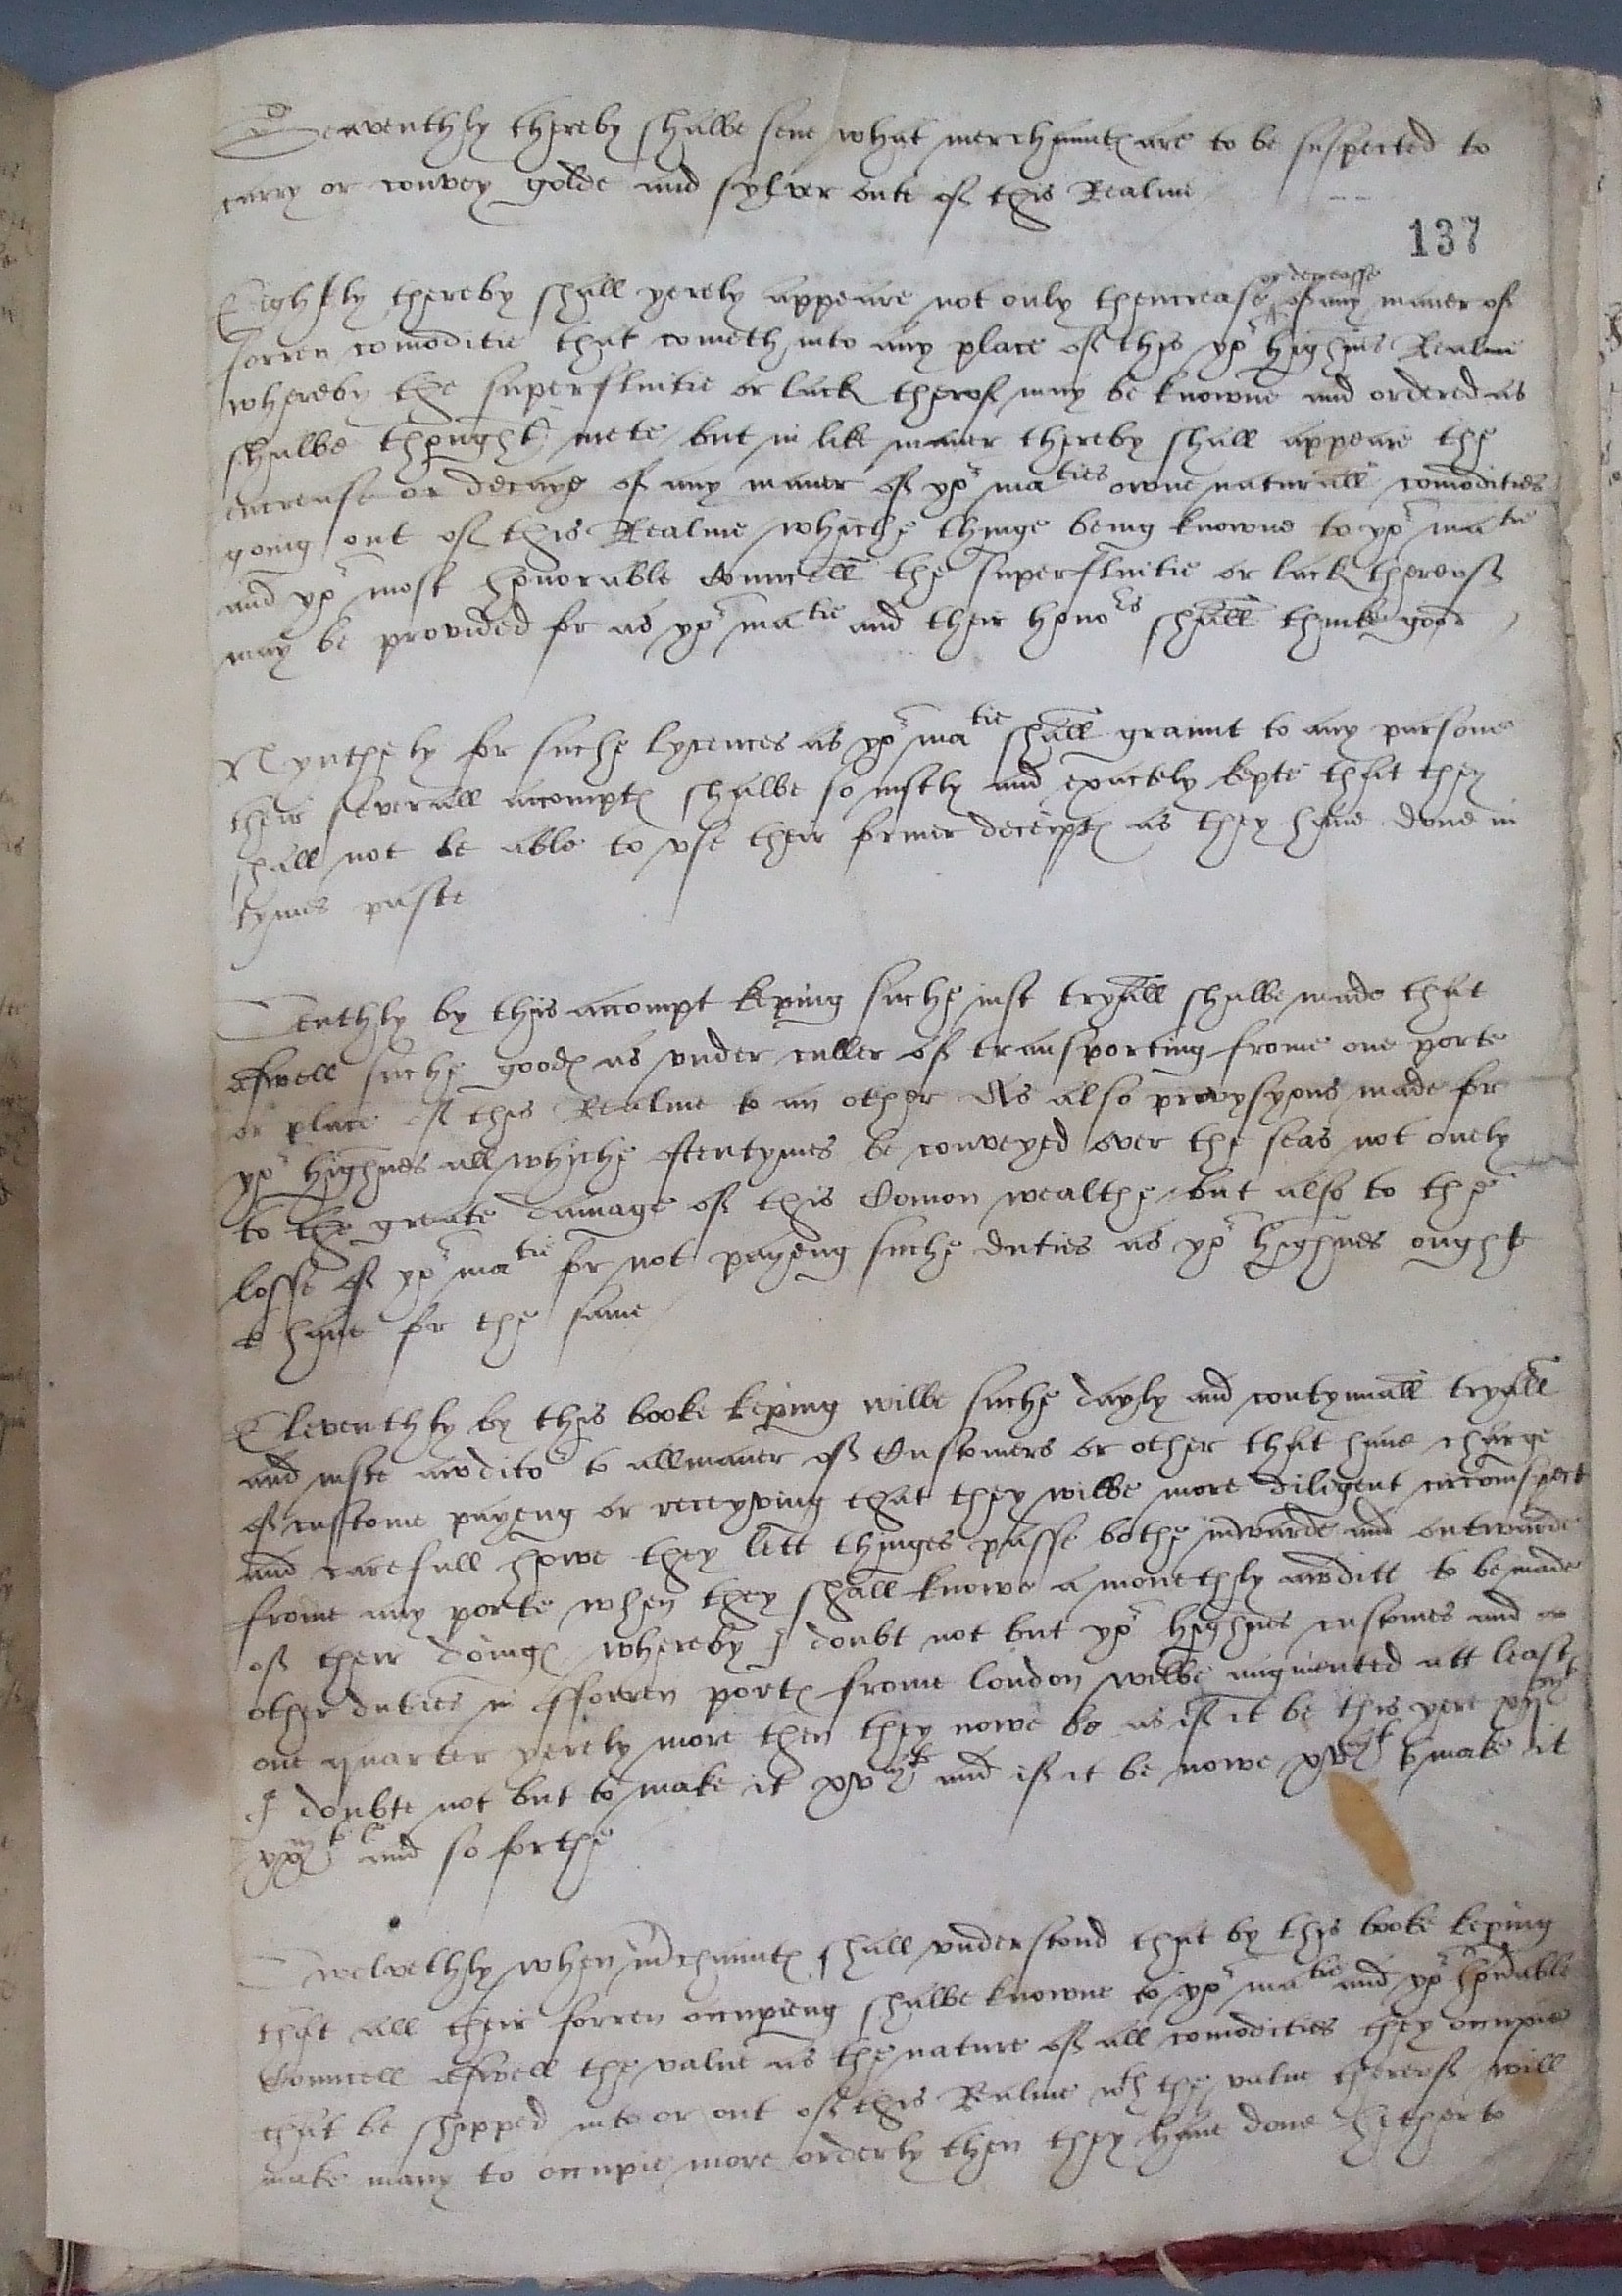 Seaventhly thereby shalbe sene what merchaunts are to be suspected to
carry or convey golde and sylver oute of this Realme
137
or decreasse
Eightly thereby shall yerely appeare not only thencrease of any maner of
forren comoditie that cometh into any place of this yor highnes Realme
whereby the superfluitie or lack therof may be knowne and ordered as
shalbe thought mete but in like maner thereby shall appeare the
encrease or decaye of any maner of yor maties owne naturall comodities
going out of this Realme whiche thinge being knowne to yor matie
and yor most honorable Councell the superfluitie or lack thereof
may be provided for as yor matie and their honors shall thinke good
Nynthely for suche lycences as yor matie shall graunt to any parsone
their severall accompts shalbe so iustly and exactely kepte that they
shall not be able to vse their former deceipts as they haue done in
tymes paste
Tenthly by this accompt keping suche iust tryall shalbe made that
aswell suche goods as vnder culler of transporting frome one porte
or place of this Realme to an other As also provysyons made for
yor highnes all whiche oftentymes be conveyed over the seas not onely
to the greate damage of this Comon wealthe but also to the
losse of yor matie for not payeng suche duties as yor highnes ought
to haue for the same
Eleventhly by this booke keping wilbe suche dayly and contynuall tryall
and iuste awditor to all maner of Customers or other that haue charge
of custome payeng or receyving that they wilbe more diligent circomspect
and carefull howe they lett thinges passe bothe inwarde and outwarde
frome any porte when they shall knowe a monethly awditt to be made
of their doings whereby I doubt not but yor highnes customes and
other duties in fforren ports frome london wilbe augmented att least
one quarter yerely more then they nowe be as if it be this yere xijmli
I doubte not but to make it xvmli and if it be nowe xvjmli to make it
xxmli and so forthe
Twelvethly when mrchaunts shall vnderstond that by this booke keping
that all their forren occupieng shalbe knowne to yor matie and yor honorable
Councell aswell the value as the nature of all comodities they occupie
that be shipped into or out of this Realme wth the value thereof will
make many to occupie more orderly then they haue done hitherto